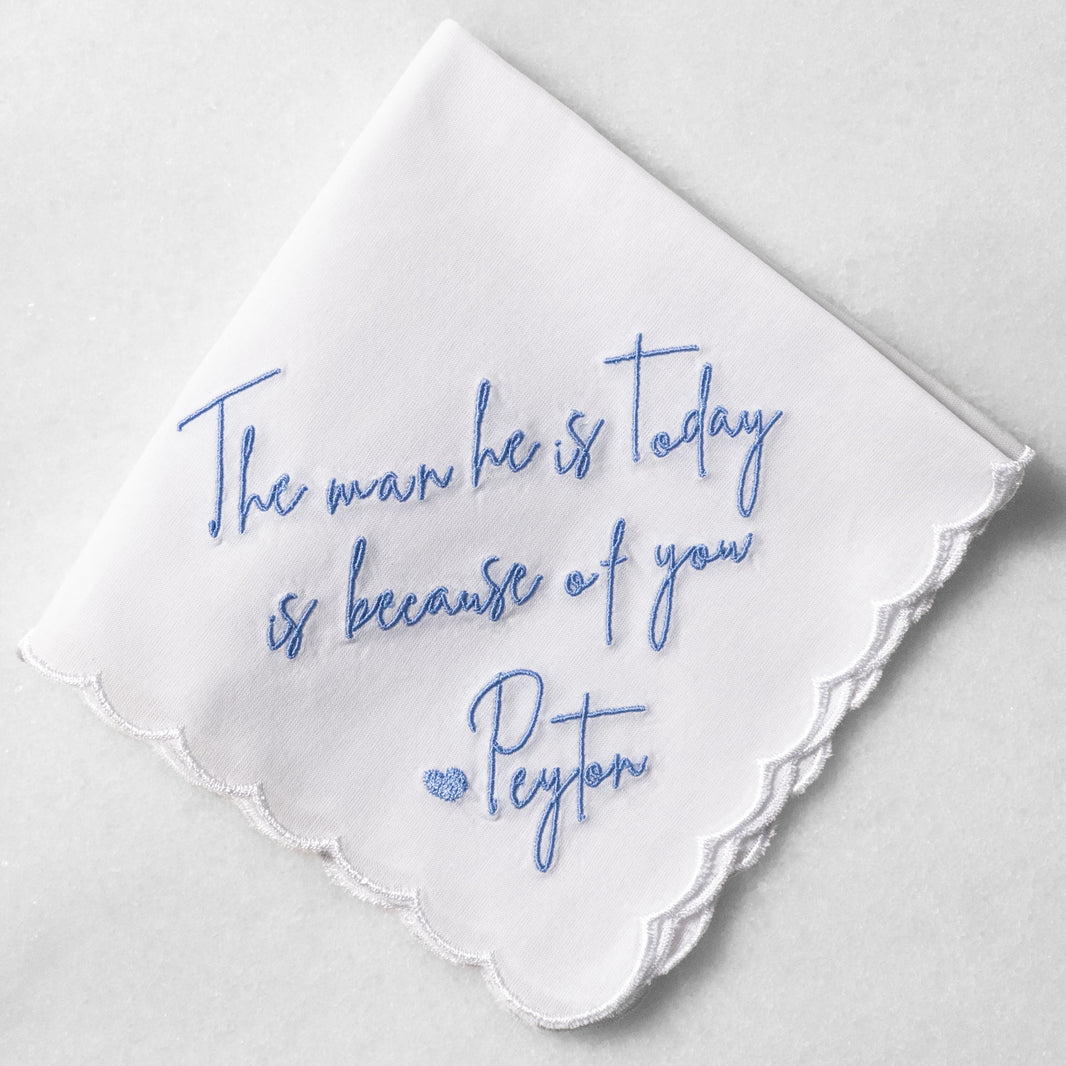 The man he is Today
is because of you
♥Peyton